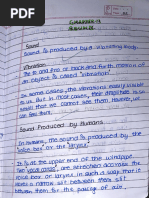 CHAPTER-13
SOUND
Sound
Sound is produced by a vibrating body.
Vibration
The to and fro or back and forth motion of
an object is called "vibration".
In some cases, the vibrations easily visible
to us. But in most cases, their amplitude is so
small that we cannot see them. However, we
can feel them.
Sound Produced by Humans
In humans, the sound is produced by the
voice box or the larynx.
It is at the upper end of the windpipe.
Two vocal cords, are stretched across the
voice box or larynx, in such a way that it
leaves a narrow slit between them
them for the passage of air.